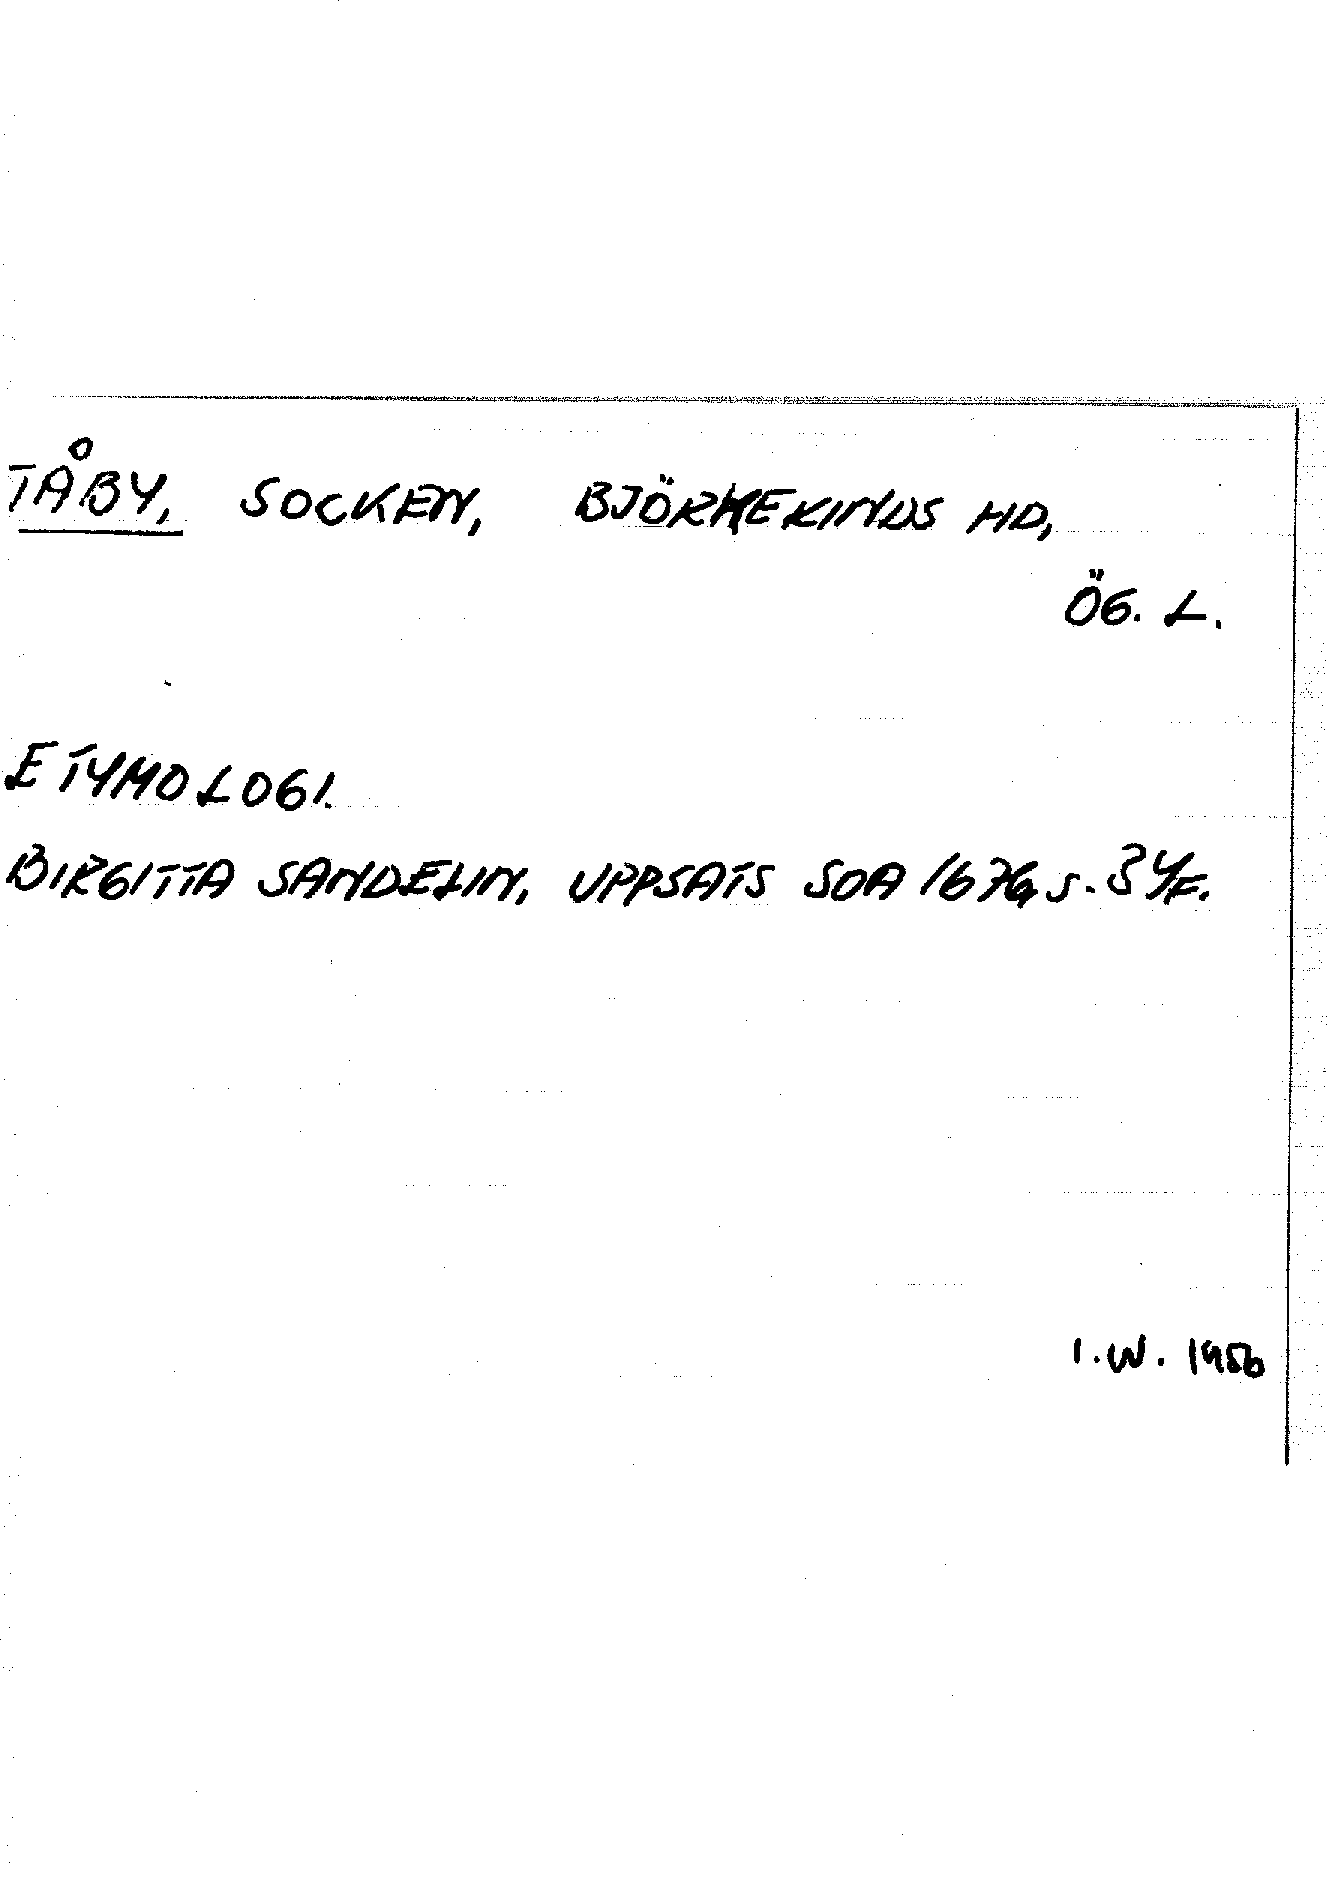 TÅBY, SOCKEN, BJÖRNEKINDS HD,
ÖG. L.
ETYMOLOGI.
BIRGITTA SANDELIN, UPPSATS SOA 1676, S. 34F.
I.W. 1956